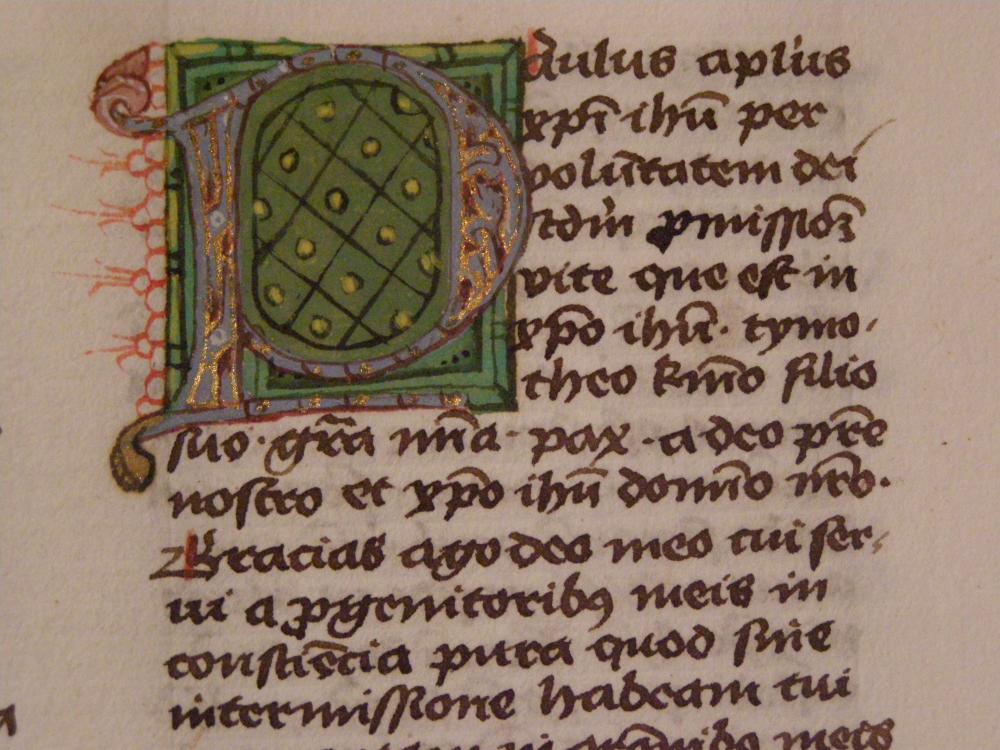 Paulus aplūs
xp̄i ih̄u per
volūtatem dei
scdm̄ pmissioꝫ
vite que est in
xp̄o ih̄u. tymo-
theo km̄o filio
suo. gr̄a mīa. pax. a deo pr̄e
nostro et xp̄o ih̄u domīo nr̄o.
Gracias ago deo meo cui ser-
ui a ꝓgenitoribꝰ meis in
consciēcia pura quod sine
intermissione habeam tui
in or̄onibꝰ meis